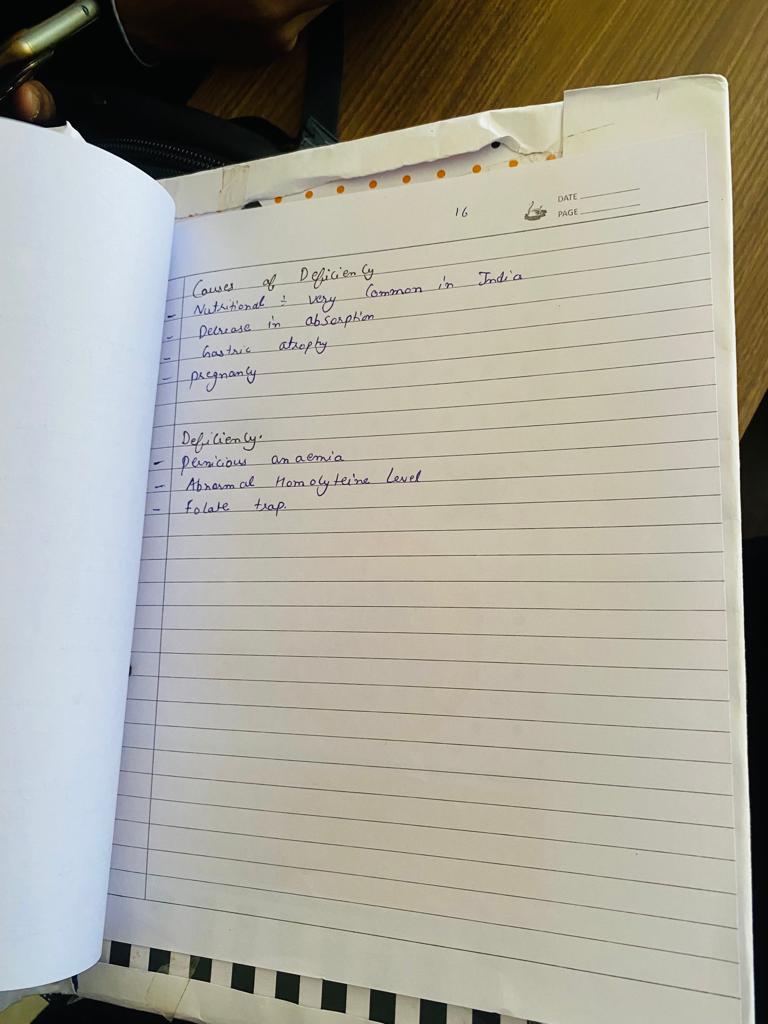 16
DATE
PAGE
Causes of Deficiency
- Nutritional ÷ very Common in India
- Decrease in absorption
- Gastric atrophy
- pregnancy
Deficiency.
- pernicious anaemia
- Abnormal Homolyteine Level
- folate trap.